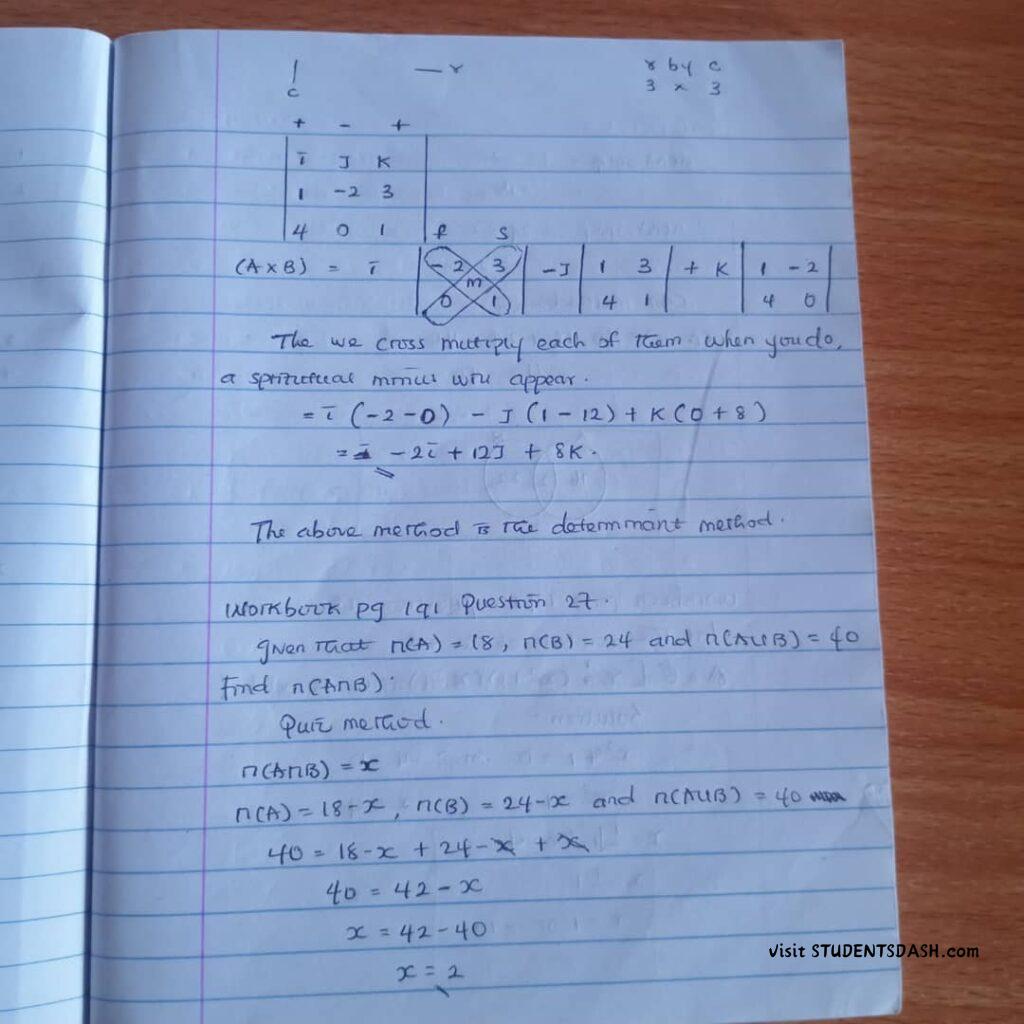 | — r r by c
c 3 x 3
+ - +
i J K
1 -2 3
4 0 1 f S
(A x B) = i | -2 3 | - J | 1 3 | + K | 1 -2 |
m
0 1 4 1 4 0
The we cross multiply each of them when you do,
a minus will appear.
= i (-2-0) - J (1 - 12) + K (0 + 8)
= - 2i + 12J + 8K.
The above method is the determinant method.
Workbook pg 191 Question 27.
given that n(A) = 18, n(B) = 24 and n(AUB) = 40
Find n(A∩B).
Quiz method.
n(A∩B) = x
n(A) = 18-x, n(B) = 24-x and n(AUB) = 40
40 = 18-x + 24-x + x
40 = 42 - x
x = 42 - 40
x = 2
visit STUDENTSDASH.com